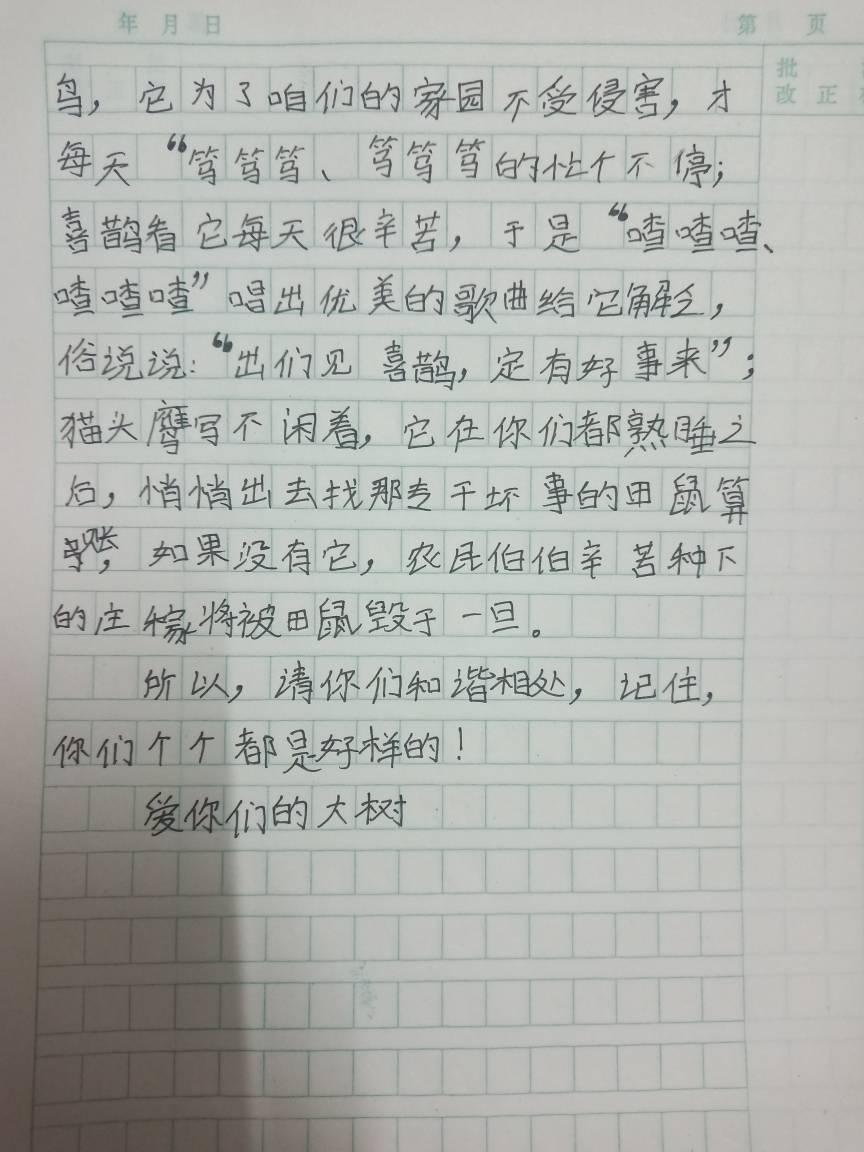 年 月 日 第 页
批
改 正
鸟，它为了咱们的家园不受侵害，才
每天“笃笃笃、笃笃笃的忙个不停；
喜鹊看它每天很辛苦，于是“喳喳喳、
喳喳喳”唱出优美的歌曲给它解乏，
俗说说：“出们见喜鹊，定有好事来”；
猫头鹰写不闲着，它在你们都熟睡之
后，悄悄出去找那专干坏事的田鼠算
账，如果没有它，农民伯伯辛苦种下
的庄稼将被田鼠毁于一旦。
所以，请你们和谐相处，记住，
你们个个都是好样的！
爱你们的大树